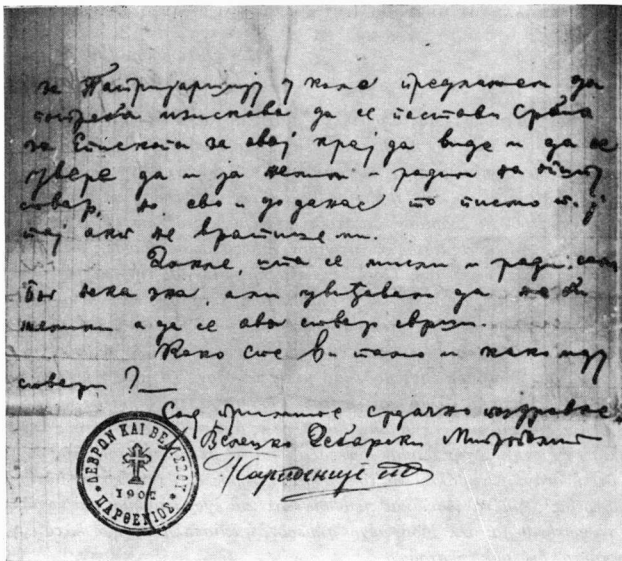 за Патријаршију у коме предлажем да
потреба изискава да се постави Србин
за Епископа за овај крај да виде и да се
увере да и ја желим и радим на општу
ствар, но ево и до данас то писмо т.ј
тај акт не вратише ми.
Дакле, шта се мисли и ради, сам
Бог нека зна, али увиђавам да не би
желили а да се ова ствар сврши.
Како сте Ви тамо и како иду
ствари ?
Сад примите срдачно поздравље.
Велешко Дебарски Митрополит
Партеније
ΔΕΒΡΩΝ ΚΑΙ ΒΕΛΕΣΣΟΥ
ΠΑΡΘΕΝΙΟΣ